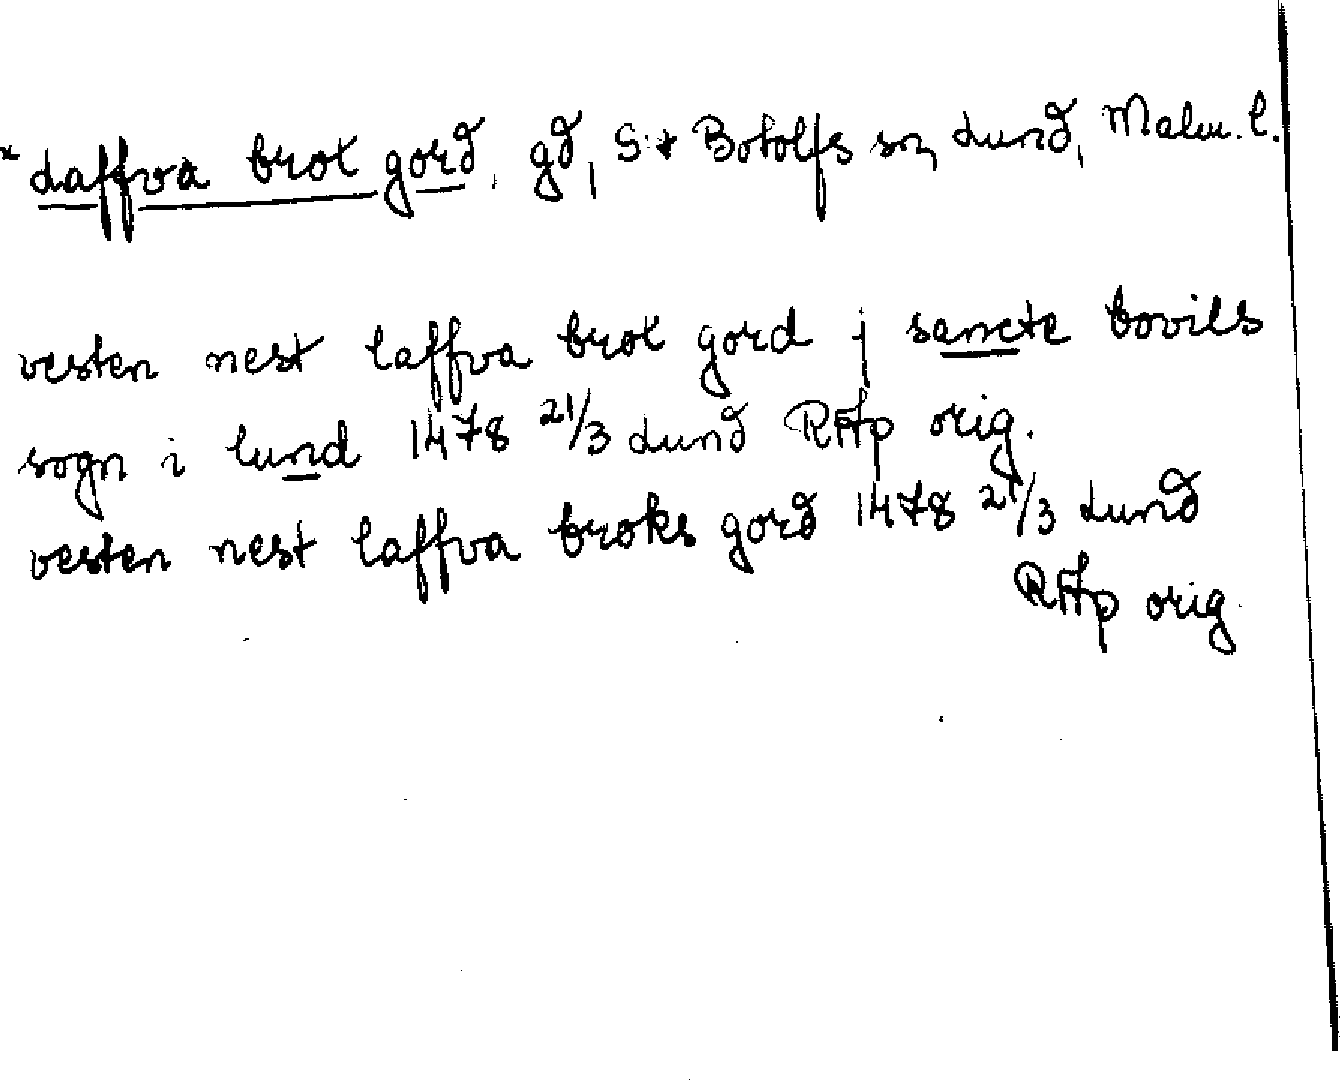 * Laffva brok gord, gd, S:t Botolfs sn, Lund, Malm. l.
vesten nest laffva brok gord j sancte bovils
sogn i lund 1478 21/3 Lund RAp orig.
vesten nest laffva broks gord 1478 21/3 Lund
RAp orig.